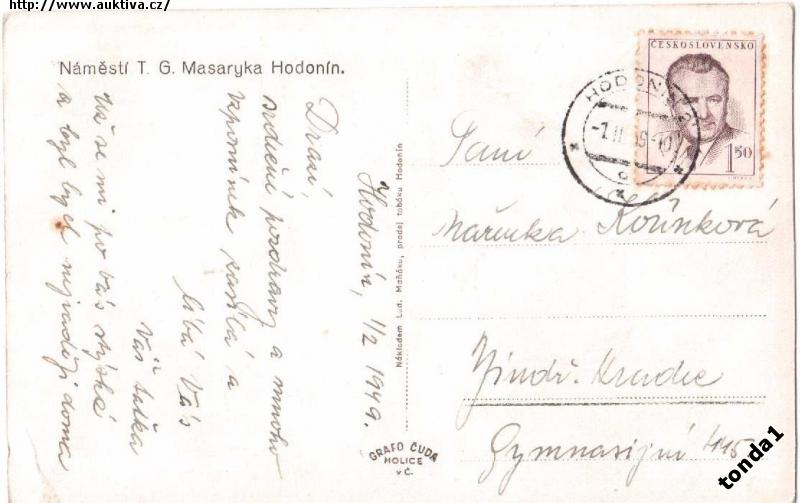 http://www.auktiva.cz/
Náměstí T. G. Masaryka Hodonín.
Hodonín, 1/2 1949.
Drazí,
srdeční pozdravy a mnoho
vzpomínek zasílá a
líbá Vás
Váš taťka
Už se mi po vás stýská
a byl bych nejraději doma
Nákladem Lud. Maňáku, prodej tabáku Hodonín
GRAFO ČUDA
HOLICE
v Č.
ČESKOSLOVENSKO
1.50
HODONÍN 2
-1.II.49-10
Paní
Mařenka Kořínková
Jindř. Hradec
Gymnasijní
tonda1